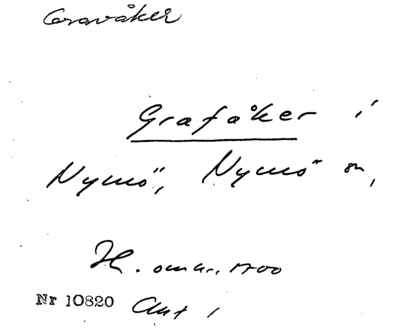 Gravåker
Grafåker i
Nymö, Nymö sn,
H. omkr. 1700
Nr 10820 Ant 1